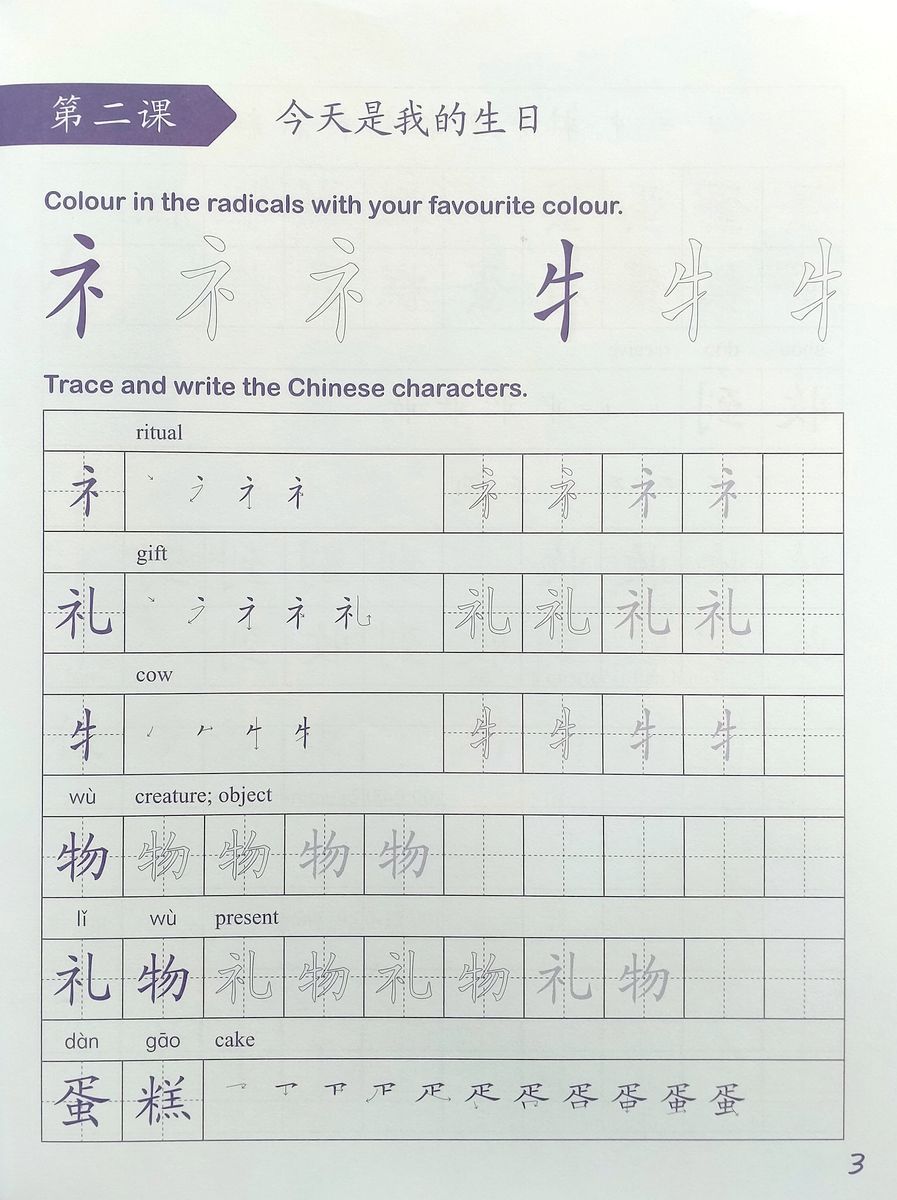 第二课 今天是我的生日
Colour in the radicals with your favourite colour.
礻 礻 礻 牜 牜 牜
Trace and write the Chinese characters.
ritual
礻 礻 礻 礻 礻
gift
礼 礼 礼 礼 礼
cow
牜 牜 牜 牜 牜
wù creature; object
物 物 物 物 物
lǐ wù present
礼 物 礼 物 礼 物 礼 物
dàn gāo cake
蛋 糕
3